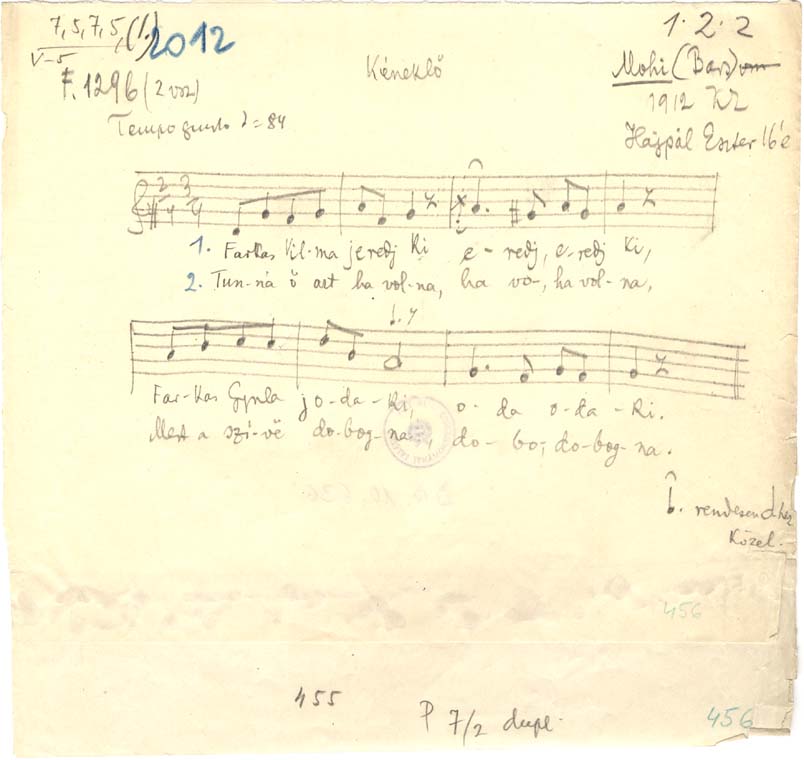 7, 5, 7, 5, (1.) 2012
V-5
F. 1296 (2 vsz)
Kéneklő
1 . 2 . 2
Mohi (Bars)
1912 KZ
Hajpál Eszter 16 é
Tempo giusto ♩ = 84
1. Farkas Vil-ma jeredj ki e - redj, e-redj ki,
2. Tun-ná ő azt ha vol-na, ha vo-, ha vol-na,
Far-kas Gyula jo-da-ki, o - da o-da-ki.
Mert a szí-vë do-bog-na, do - bo, do-bog-na.
rendesen
közel.
456
455
P 7/2 dupl.
456